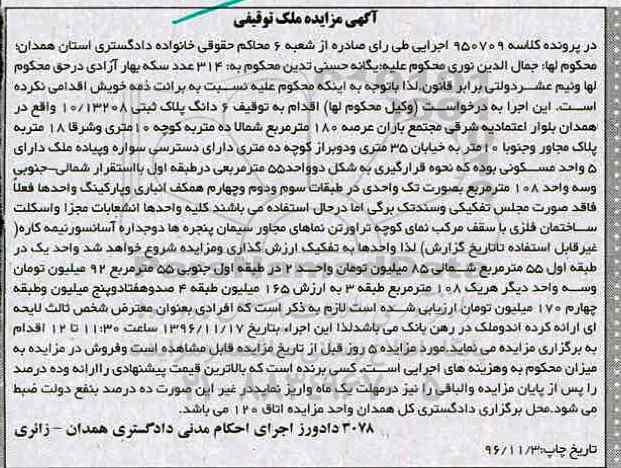 آگهی مزایده ملک توقیفی
در پرونده کلاسه ۹۵۰۷۰۹ اجرایی طی رای صادره از شعبه ۶ محاکم حقوقی خانواده دادگستری استان همدان؛
محکوم لها: جمال الدین نوری محکوم علیه:یگانه حسنی تدین محکوم به: ۳۱۴ عدد سکه بهار آزادی درحق محکوم
لها ونیم عشردولتی برابر قانون.لذا باتوجه به اینکه محکوم علیه نسبت به برائت ذمه خویش اقدامی نکرده
است. این اجرا به درخواست (وکیل محکوم لها) اقدام به توقیف ۶ دانگ پلاک ثبتی ۱۰/۱۳۲۰۸ واقع در
همدان بلوار اعتمادیه شرقی مجتمع باران عرصه ۱۸۰ مترمربع شمالا ده متربه کوچه ۱۰متری وشرقا ۱۸ متربه
پلاک مجاور وجنوبا ۱۰متر به خیابان ۳۵ متری ودوبراز کوچه ده متری دارای دسترسی سواره وپیاده ملک دارای
۵ واحد مسکونی بوده که نحوه قرارگیری به شکل دوواحد۵۵ مترمربعی درطبقه اول بااستقرار شمالی-جنوبی
وسه واحد ۱۰۸ مترمربع بصورت تک واحدی در طبقات سوم ودوم وچهارم همکف انباری وپارکینگ واحدها فعلاً
فاقد صورت مجلس تفکیکی وسندتک برگی اما درحال استفاده می باشند کلیه واحدها انشعابات مجزا واسکلت
ساختمان فلزی با سقف مرکب نمای کوچه تراورتن نماهای مجاور سیمان پنجره ها دوجداره آسانسورنیمه کاره(
غیرقابل استفاده تاتاریخ گزارش) لذا واحدها به تفکیک ارزش گذاری ومزایده شروع خواهد شد واحد یک در
طبقه اول ۵۵ مترمربع شمالی ۸۵ میلیون تومان واحد ۲ در طبقه اول جنوبی ۵۵ مترمربع ۹۲ میلیون تومان
وسه واحد دیگر هریک ۱۰۸ مترمربع طبقه ۳ به ارزش ۱۶۵ میلیون طبقه ۴ صدوهفتادوپنج میلیون وطبقه
چهارم ۱۷۰ میلیون تومان ارزیابی شده است لازم به ذکر است که افرادی بعنوان معترض شخص ثالث لایحه
ای ارائه کرده اندوملک در رهن بانک می باشدلذا این اجراء بتاریخ ۱۳۹۶/۱۱/۱۷ ساعت ۱۱:۳۰ تا ۱۲ اقدام
به برگزاری مزایده می نماید.مورد مزایده ۵ روز قبل از تاریخ مزایده قابل مشاهده است وفروش در مزایده به
میزان محکوم به وهزینه های اجرایی است. کسی برنده است که بالاترین قیمت پیشنهادی راارائه وده درصد
را پس از پایان مزایده والباقی را نیز درمهلت یک ماه واریز نمایددر غیر این صورت ده درصد بنفع دولت ضبط
می شود.محل برگزاری دادگستری کل همدان واحد مزایده اتاق ۱۲۰ می باشد.
۳۰۷۸ دادورز اجرای احکام مدنی دادگستری همدان - زائری
تاریخ چاپ:۹۶/۱۱/۳